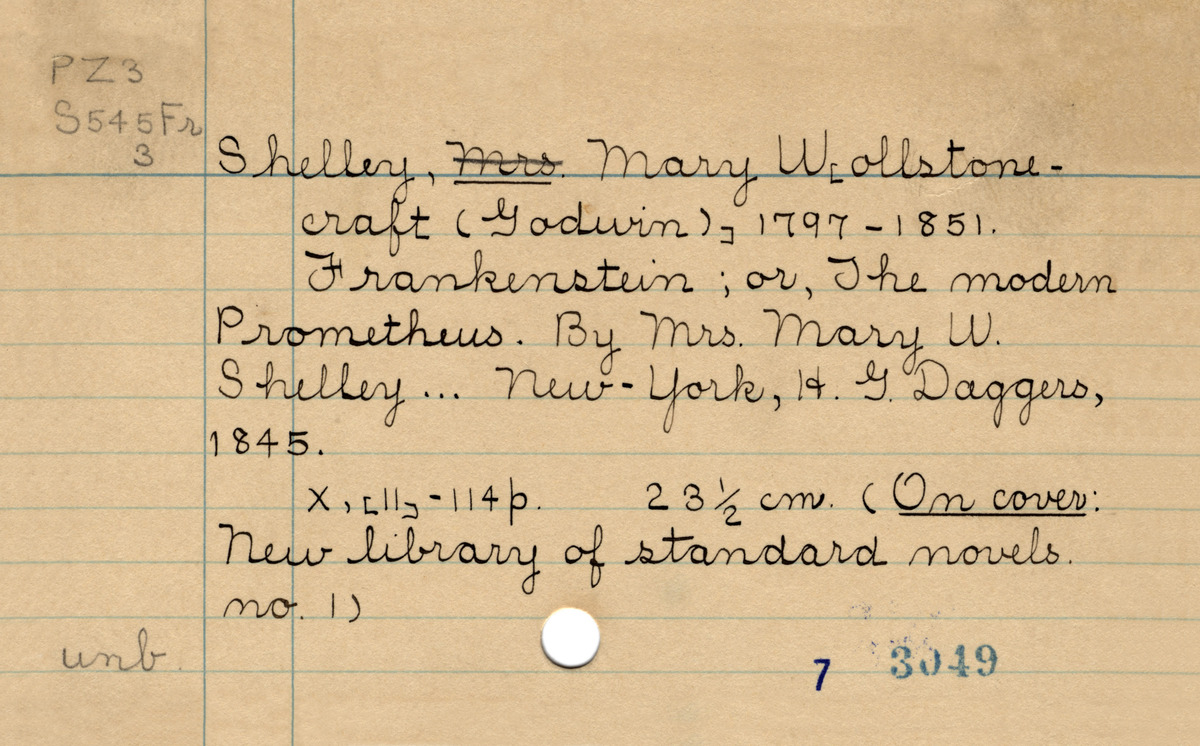 PZ3
S545Fr
3
Shelley, Mrs. Mary W[ollstone-
craft (Godwin)] 1797-1851.
Frankenstein; or, The modern
Prometheus. By Mrs. Mary W.
Shelley... New-York, H. G. Daggers,
1845.
x, [11]-114 p. 23½ cm. (On cover:
New library of standard novels.
no. 1)
unb.
7 3049